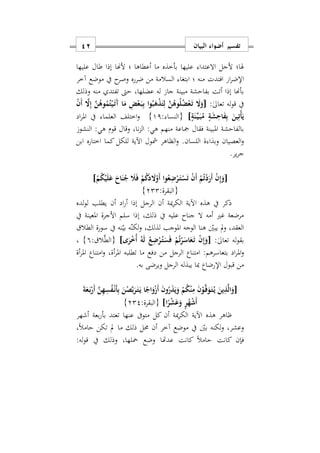 ٤٢
تفسير أضواء البيان
لها؛ لأجل الاعتداء عليها بأخذه ما أعطاها؛ لأنها إذا طال عليها
الإضرار افتدت منه؛ ابتغاء السلامة من ضرره وصرح في موضع آخر
بأنها إذا أتت بفاحشة مبينة جاز له عضلها، حتى تفتدي منه وذلك
في قوله تعالى: [وَلَا تَعْضُلُوهُنَّ لِتَذْهَبُوا بِبَعْضِ مَا آَتَيْتُمُوهُنَّ إِلَّا أَنْ
يَأْتِينَ بِفَاحِشَةٍ مُبَيِّنَةٍ] {النساء:١٩} واختلف العلماء في المراد
بالفاحشة المبينة فقال جماعة منهم هي: الزنا، وقال قوم هي: النشوز
والعصيان وبذاءة اللسان. والظاهر شمول الآية للكل كما اختاره ابن
جرير.
[وَإِنْ أَرَدْتُمْ أَنْ تَسْتَرْضِعُوا أَوْلَادَكُمْ فَلَا جُنَاحَ عَلَيْكُمْ]
{البقرة:٢٣٣}
ذكر في هذه الآية الكريمة أن الرجل إذا أراد أن يطلب لولده
مرضعة غير أمه لا جناح عليه في ذلك، إذا سلم الأجرة المعينة في
العقد، ولم يبيّن هنا الوجه الموجب لذلك، ولكنه بيّنه في سورة الطلاق
بقوله تعالى: [وَإِنْ تَعَاسَرْتُمْ فَسَتُرْضِعُ لَهُ أُخْرَى] {الطَّلاق:٦} ،
والمراد بتعاسرهم: امتناع الرجل من دفع ما تطلبه المرأة، وامتناع المرأة
من قبول الإرضاع بما يبذله الرجل ويرضى به.
[وَالَّذِينَ يُتَوَفَّوْنَ مِنْكُمْ وَيَذَرُونَ أَزْوَاجًا يَتَرَبَّصْنَ بِأَنْفُسِهِنَّ أَرْبَعَةَ
أَشْهُرٍ وَعَشْرًا] {البقرة:٢٣٤}
ظاهر هذه الآية الكريمة أن كل متوفى عنها تعتد بأربعة أشهر
وعشر، ولكنه بيّن في موضع آخر أن محل ذلك ما لم تكن حاملاً،
فإن كانت حاملاً كانت عدتها وضع حملها، وذلك في قوله: